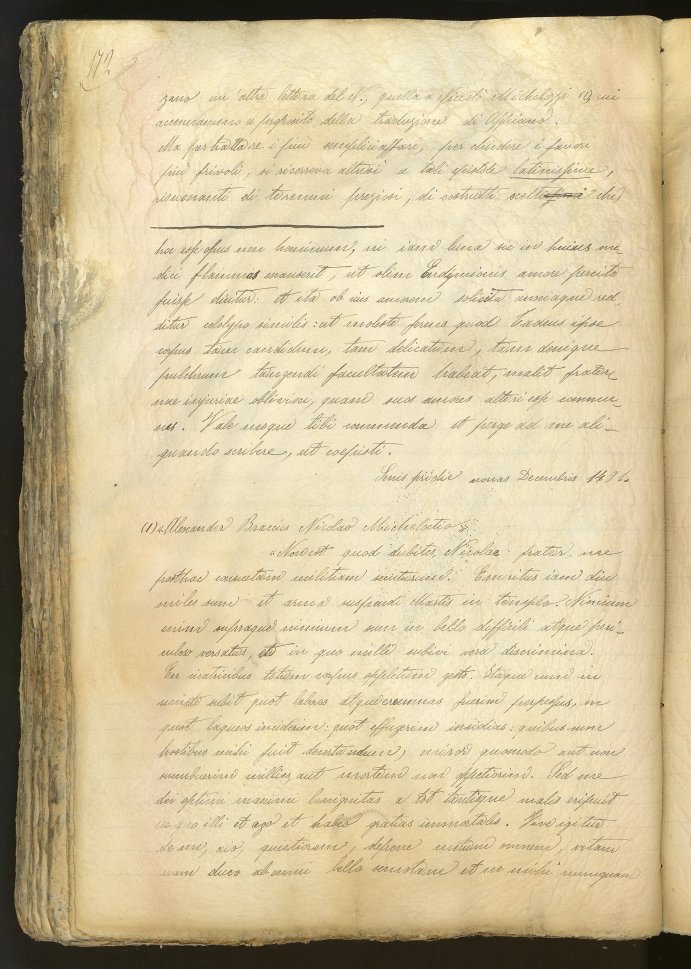 172
zano un'altra lettera del N., quella a Niccolò Michelozzi (1) cui
accennammo a proposito della traduzione di Appiano.
Ma per trattare i più semplici affari, per chiedere i favori
più frivoli, si ricorreva altresì a tali epistole latinissime,
risuonanti di termini preziosi, di costrutti scelti che
hoc esse opus non hominum, ni iam luna sic in huius me-
dici flammas exarserit, ut olim Endymionis amore percita
fuisse dicitur: et ita ob eius amorem solicita anxiaque red-
ditur zelotypo similis: ut moleste ferens quod Cadens ipse
corpus tam candidum, tam delicatum, tam denique
pulchrum tangendi facultatem habeat, malit frater-
nae injuriae oblivisci, quam suos amores alteri esse commu-
nes. Vale meque tibi commenda et perge ad me ali-
quando scribere, ut coepisti.
Senis pridie nonas Decembris 1491.
(1) «Alexander Braccius Nicolao Michelotio S.
«Non est quod dubites Nicolae frater me
posthac consuetam militiam sociturum. Emeritus iam diu
miles sum et arma suspendi Martis in templo. Nimium
enim supraque nimium sum in bello difficili atque peri-
culoso versatus, et in quo mille subivi vera discrimina.
En cicatricibus totum corpus oppletum gesto. Itaque cum in
mentem subit quot labores atque erumnas fuerim perpessus, in
quot laqueos inciderim: quot effugerim insidias: quibus cum
hostibus mihi fuit decertandum, miror quomodo aut non
succubuerim millies, aut mortem non appetierim. Sed me
dei optimi maximi benignitas a tot tantisque malis eripuit
ex quo illi et ago et habeo gratias immortales. Vive igitur
de me, aio, questionem, depone metum omnem, vitam
nam duco ab omni bello semotam et ne mihi numquam